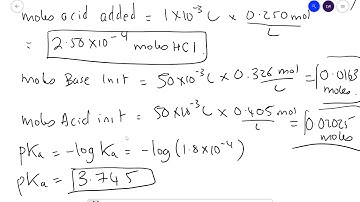 moles acid added = 1×10⁻³L × 0.250 mol/L
= 2.50×10⁻⁴ moles HCl
moles Base init = 50×10⁻³L × 0.326 mol/L = 0.0163 moles.
moles Acid init = 50×10⁻³L × 0.405 mol/L = 0.02025 moles
pKa = -log Ka = -log(1.8×10⁻⁴)
pKa = 3.745